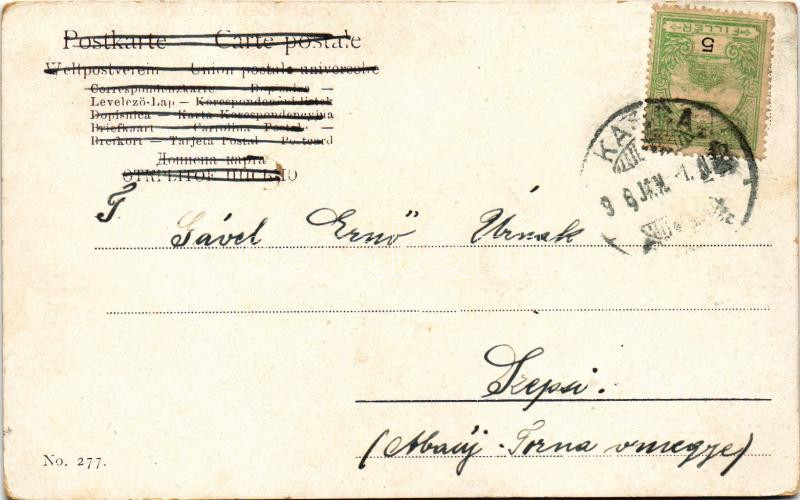 Postkarte — Carte postale
Weltpostverein — Union postale universelle
Correspondenzkarte — Dopisnice —
Levelező-Lap — Korespondenční lístek
Dopisnica — Karta Korespondencyjna
Briefkaart — Cartolina Postale —
Brefkort — Tarjeta Postal — Postcard
ОТКРЫТОЕ ПИСЬМО
5
FILLÉR
T. Gável Ernő Úrnak
Szepsi.
(Abaúj-Torna vmegye)
No. 277.